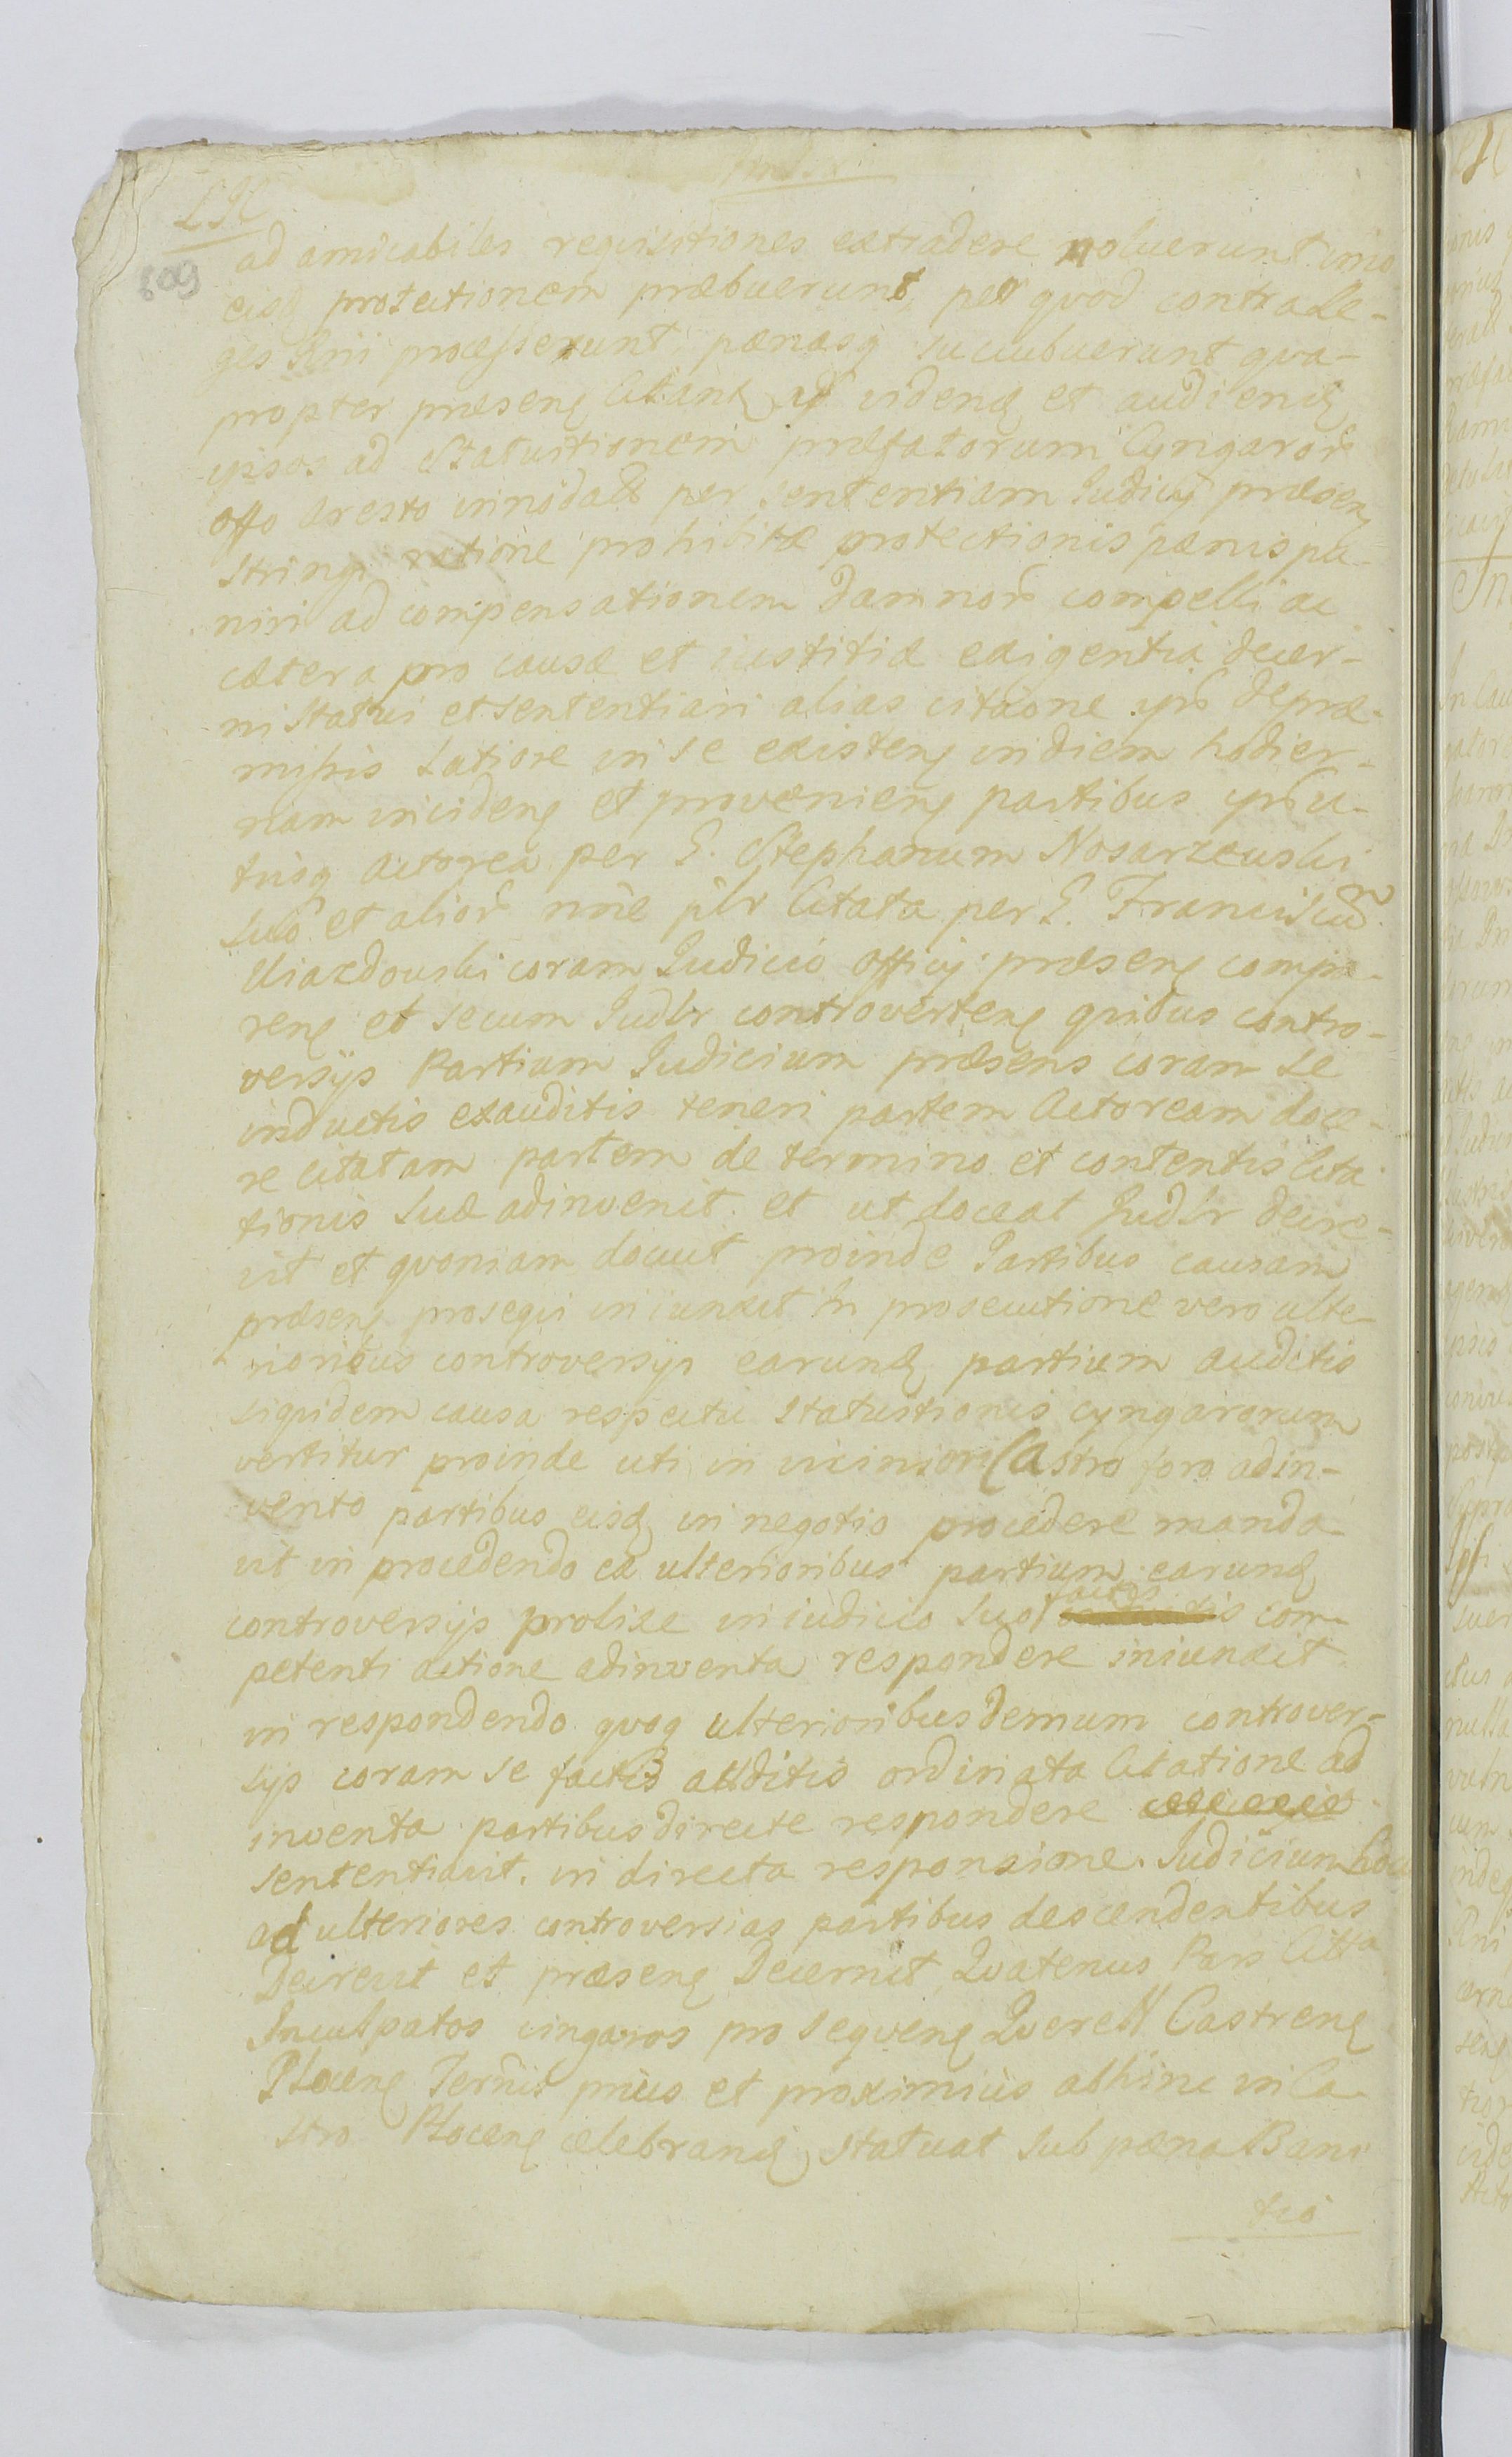 609
ad amicabiles requisitiones extradere noluerunt imo
eisq protectionem præbuerunt, per quod contra le-
ges Rni processerunt pænasq succubuerunt qua-
propter præsenq citanq vidend et audiend
ipsos ad statuitionem præfatorum Cyngaror
offo aresto innodat per sententiam Judicij præsen
stringi ratione prohibitæ protectionis pænis pu-
niri ad compensationem damnor compelli ac
cætera pro causæ et iustitiæ exigentia decer-
ni statui et sententiari alias citãone ipã de præ-
missis latiore in se existenq in diem hodier-
nam incidenq et provenienq partibus ipis u-
trisq Actorea per G. Stephanum Nosarzewski
suo et alior nõie pñlr Citata per G. Franciscum
Uiazdouski coram Judicio officij præsenq compa-
renq et secum Judlr controvertenq quibus contro-
versijs Partium Judicium præsens coram se
inductis exauditis teneri partem Actoream doce-
re citatam partem de termino et contentis Cita
tionis suæ adinvenit et ut doceat Judlr decre-
vit et quoniam docuit proinde Partibus causam
præsenq prosequi iniunxit In prosecutione vero ulte-
rioribus controversijs earund partium auditis
siquidem causa respectu statuitionis cyngarorum
vertitur proinde uti in viciniori Castro foro adin-
vento partibus eisd in negotio procedere manda
vit in procedendo ex ulterioribus partium earund
controversijs prolixe in iudicio suo factis com-
petenti actione adinventa respondere iniunxit
in respondendo quoq ulterioribus demum controver-
sijs coram se factis auditis ordinata Citatione ad
inventa partibus directe respondere
sententiavit. in directa responsione. Judicium hoc
ad ulteriores controversias partibus descendentibus
Decrevit et præsenq Decernit, Quatenus Pars Citta
Inculpatos cingaros pro sequenq Querell Castrenq
Plocenq Termis prius et proximius abhinc in Ca-
stro Plocenq celebrand statuat sub pæna Bani
tio